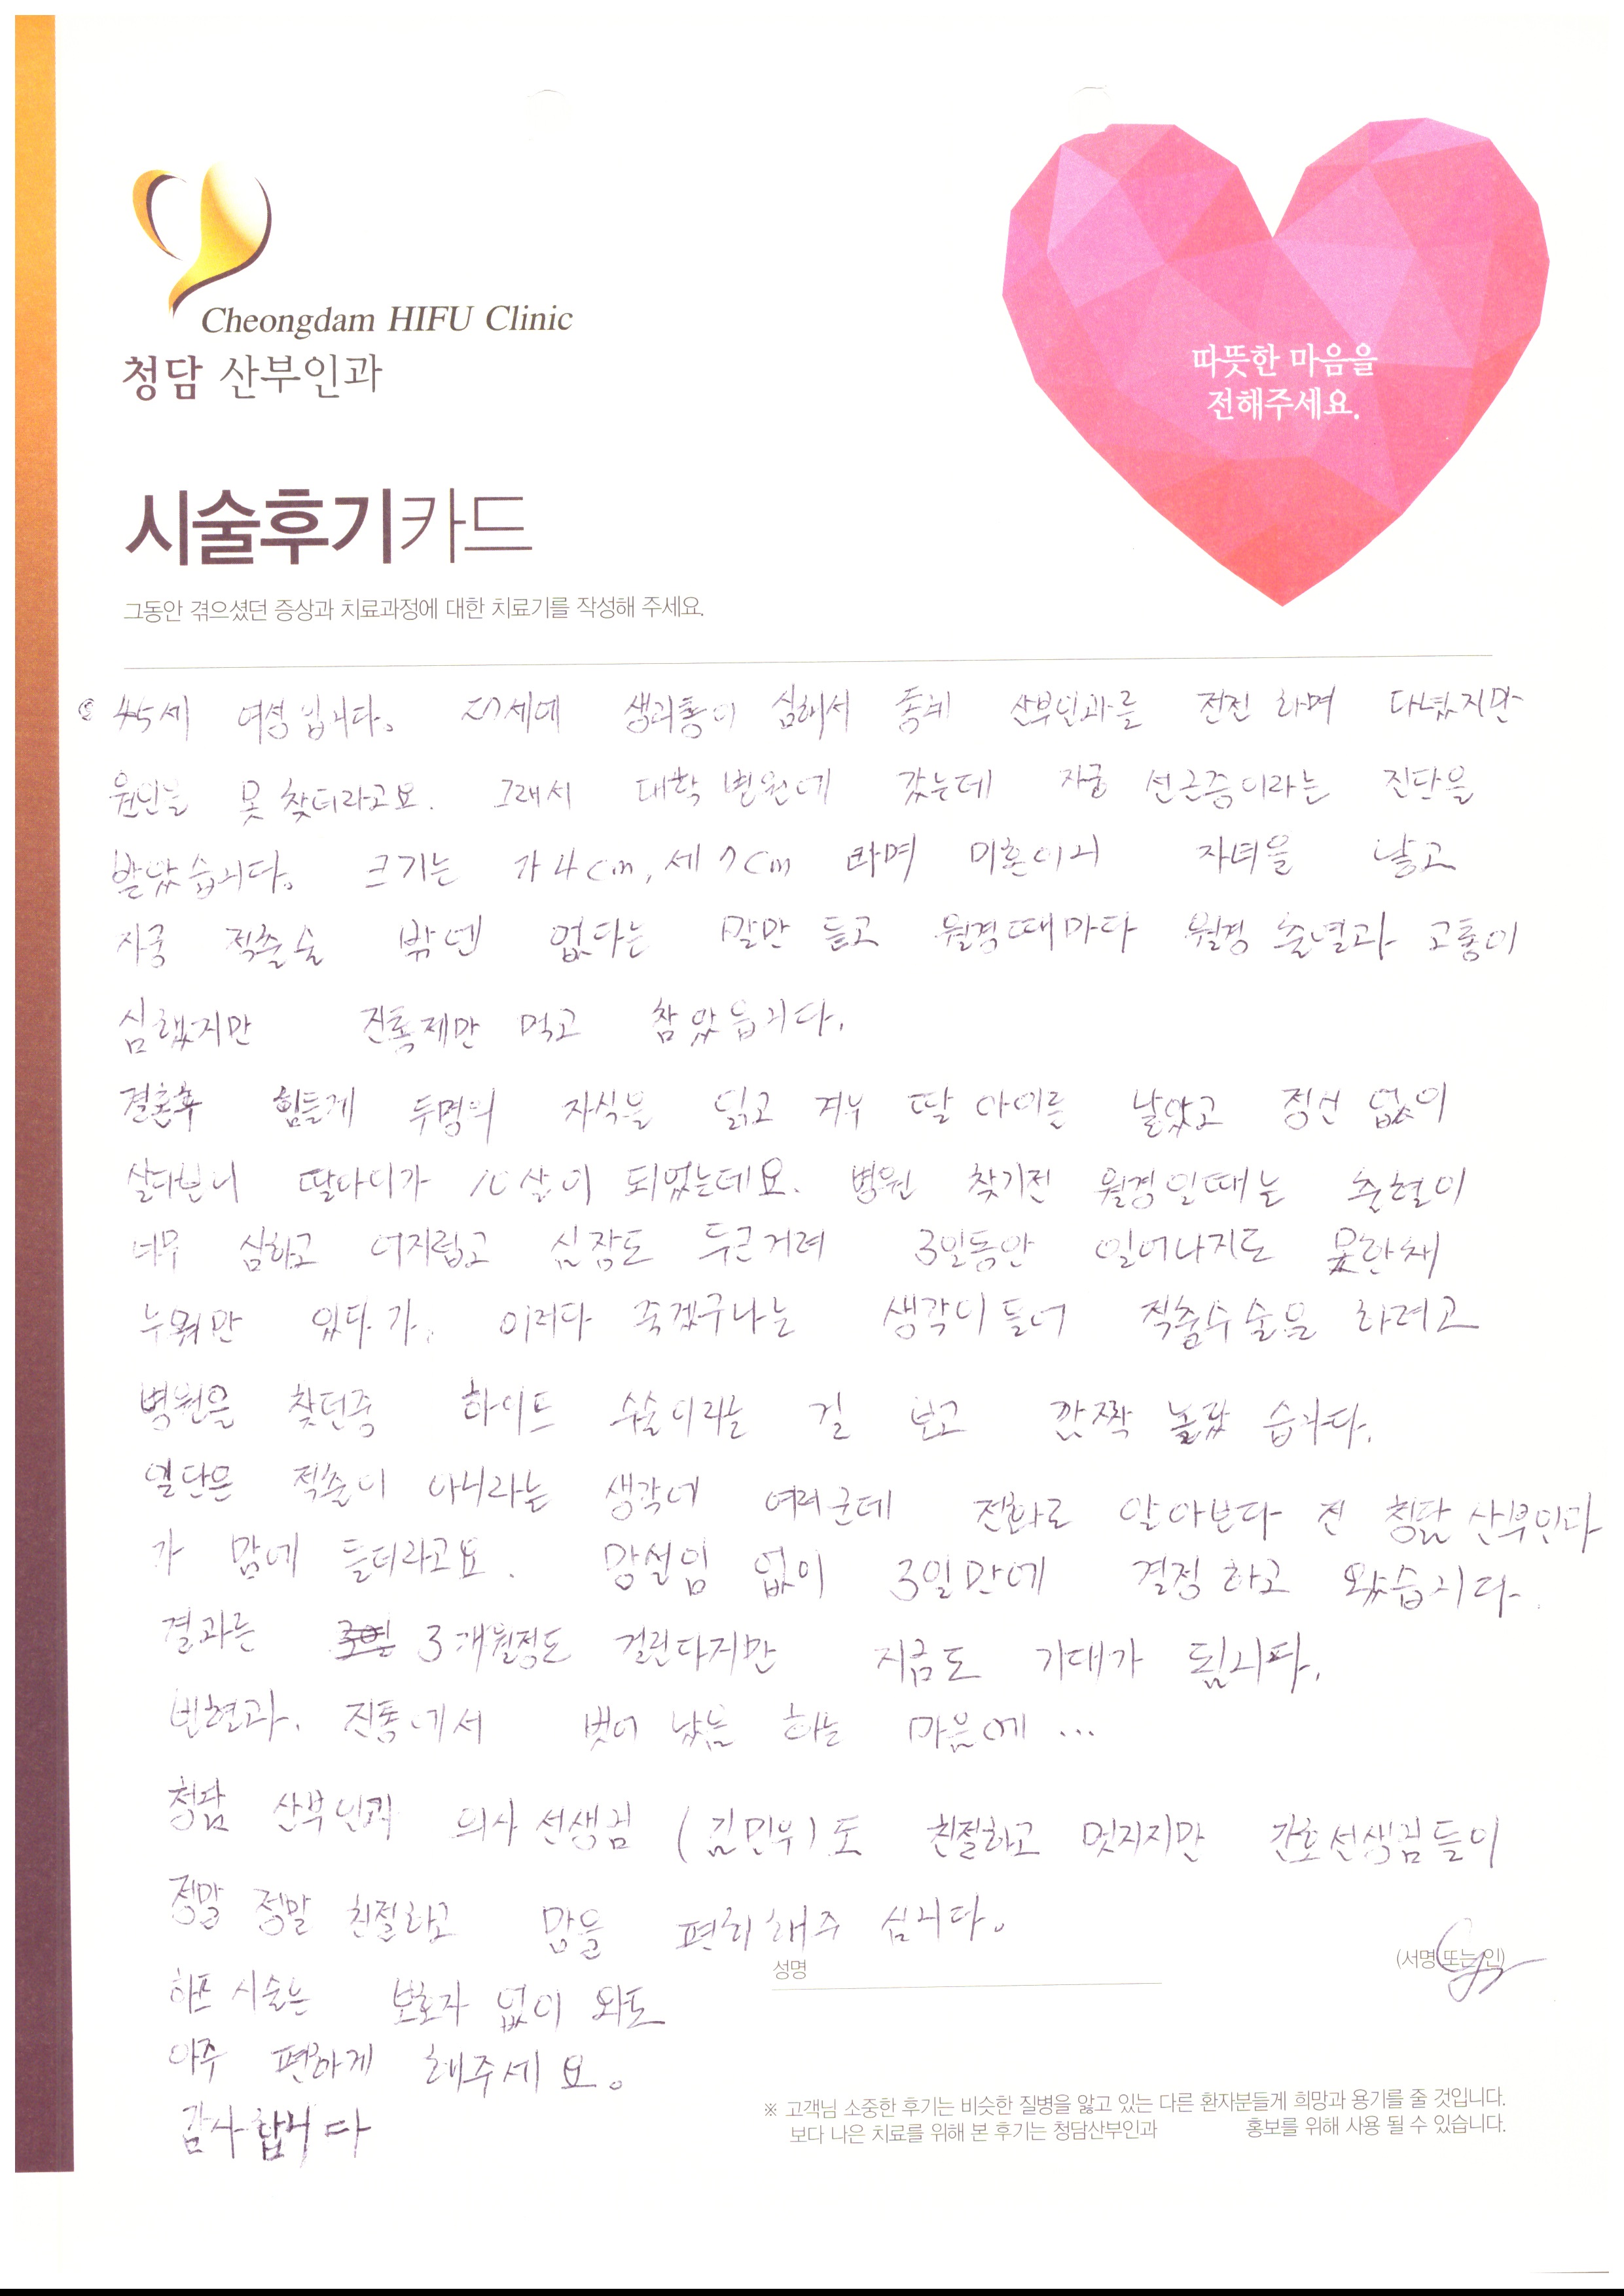 Cheongdam HIFU Clinic
청담 산부인과
따뜻한 마음을
전해주세요.
시술후기카드
그동안 겪으셨던 증상과 치료과정에 대한 치료기를 작성해 주세요.
45세 여성입니다. 27세에 생리통이 심해서 동네 산부인과를 전전 하며 다녔지만
원인을 못 찾더라고요. 그래서 대학 병원에 갔는데 자궁 선근증이라는 진단을
받았습니다. 크기는 가4cm, 세7cm 라며 미혼이니 자녀을 낳고
자궁 적출술 밖엔 없다는 말만 듣고 월경때마다 월경 출혈과 고통이
심했지만 진통제만 먹고 참았습니다.
결혼후 힘들게 두명의 자식을 잃고 겨우 딸 아이를 낳았고 정신 없이
살다보니 딸아이가 10살이 되었는데요. 병원 찾기전 월경일때는 출혈이
너무 심하고 어지럽고 심장도 두근거려 3일동안 일어나지도 못한채
누워만 있다가, 이러다 죽겠구나는 생각이들어 적출수술을 하려고
병원을 찾던중 하이트 수술이라는 걸 보고 깜짝 놀랐 습니다.
일단은 적출이 아니라는 생각에 여러군데 전화로 알아보다 전 청담 산부인과
가 맘에 들더라고요. 망설임 없이 3일만에 결정 하고 왔습니다.
결과는 3개월정도 걸린다지만 지금도 기대가 됩니다.
빈혈과, 진통에서 벗어 났음 하는 마음에 ...
청담 산부인과 의사 선생님 (김민우)도 친절하고 멋지지만 간호선생님들이
정말 정말 친절하고 맘을 편히해주 십니다.
성명
(서명 또는 인)
하프 시술는 보호자 없이 와도
아주 편하게 해주세요.
감사합니다
※ 고객님 소중한 후기는 비슷한 질병을 앓고 있는 다른 환자분들게 희망과 용기를 줄 것입니다.
보다 나은 치료를 위해 본 후기는 청담산부인과 홍보를 위해 사용 될 수 있습니다.